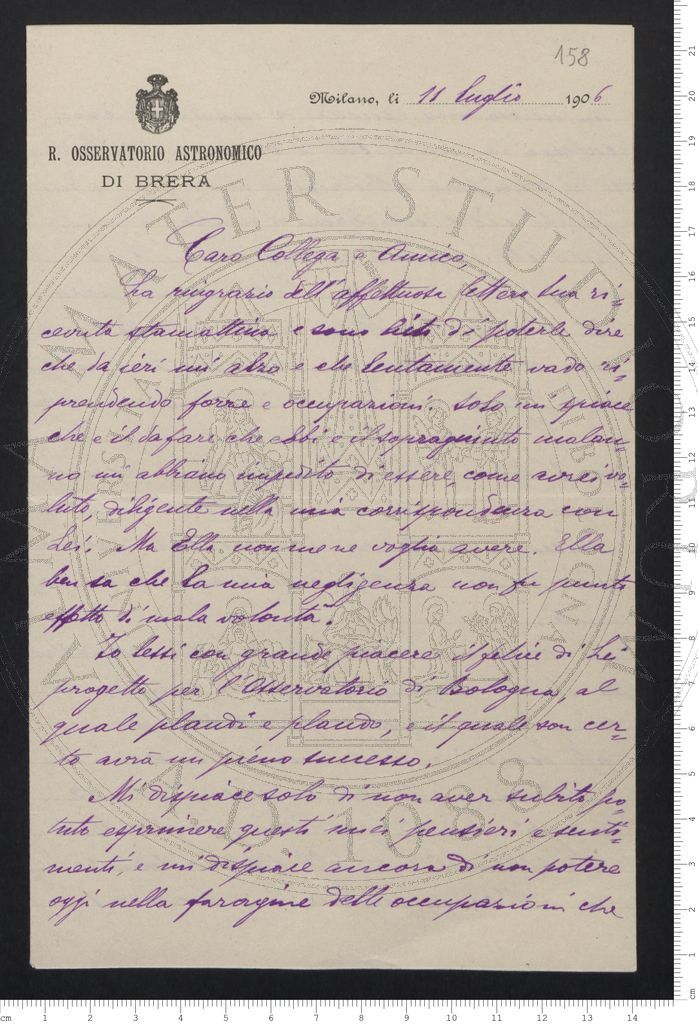 158
Milano, li 11 luglio 1906
R. OSSERVATORIO ASTRONOMICO
DI BRERA
Caro Collega e Amico,
La ringrazio dell'affettuosa lettera sua ri-
cevuta stamattina e sono lieto di poterle dire
che da ieri mi alzo e che lentamente vado ri-
prendendo forze e occupazioni. Solo mi spiace
che e il da fare che ebbi e il sopragiunto malan-
no mi abbiano impedito di essere, come avrei vo-
luto, diligente nella mia corrispondenza con
Lei. Ma Ella non me ne voglia avere. Ella
ben sa che la mia negligenza non fu punto
effetto di mala volontà.
Io lessi con grande piacere il felice di Lei
progetto per l'Osservatorio di Bologna, al
quale plaudii e plaudo, e il quale son cer-
to avrà un pieno successo.
Mi dispiace solo di non aver subito po-
tuto esprimere questi miei pensieri e senti-
menti, e mi dispiace ancora di non potere
oggi nella faragine delle occupazioni che
ALMA MATER STUDIORUM
A.D. 1088